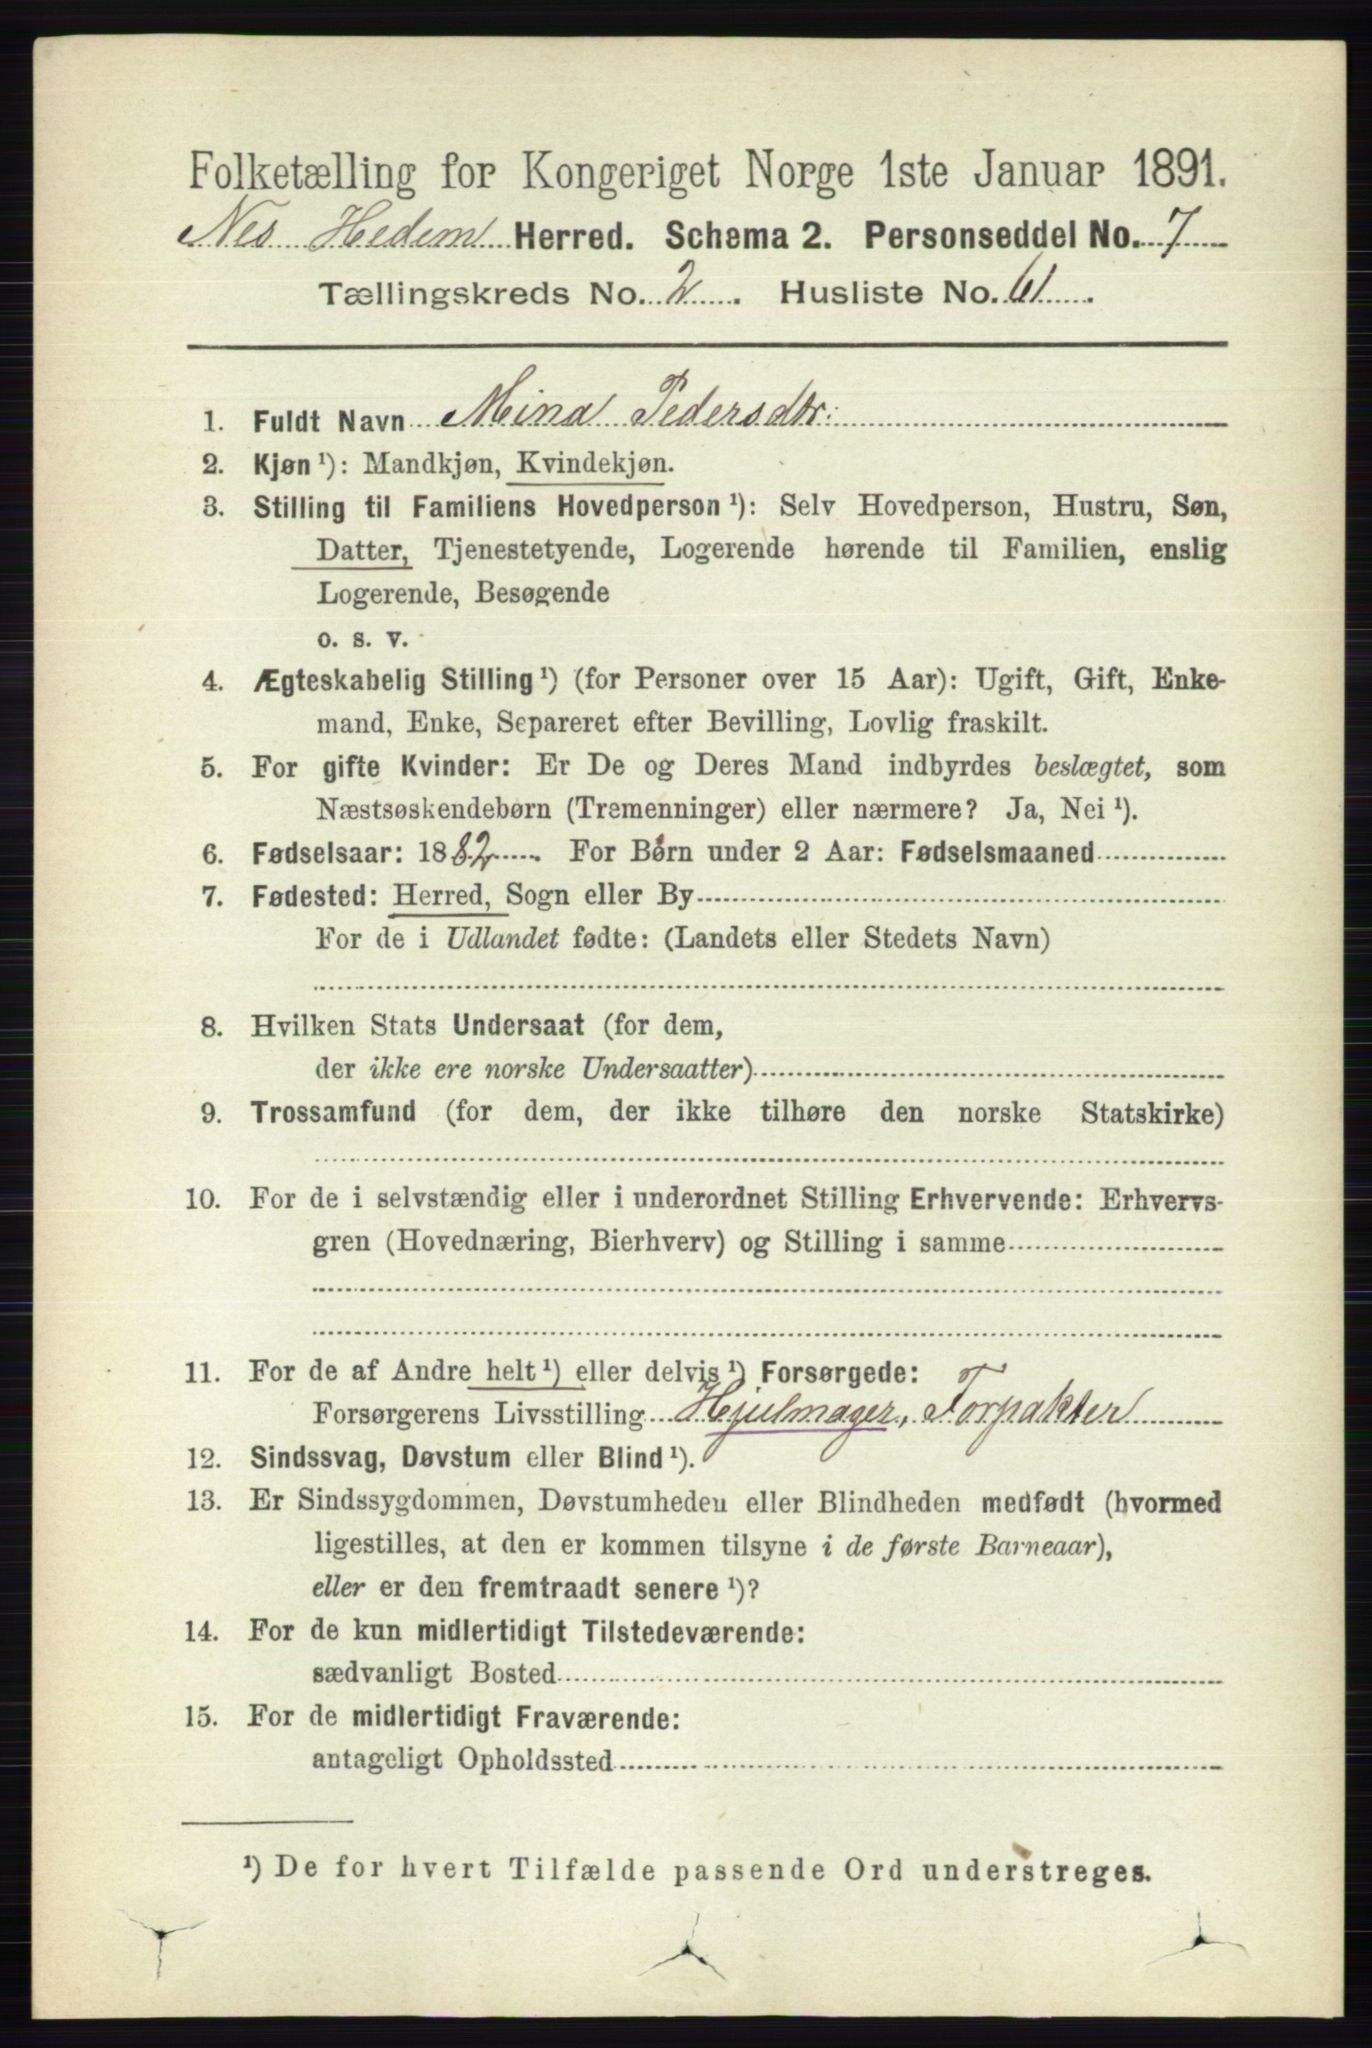 Folketælling for Kongeriget Norge 1ste Januar 1891.
Nes Hedem Herred. Schema 2. Personseddel No. 7
Tællingskreds No. 2. Husliste No. 61.
1. Fuldt Navn Mina Pedersdtr:
2. Kjøn ¹): Mandkjøn, Kvindekjøn.
3. Stilling til Familiens Hovedperson ¹): Selv Hovedperson, Hustru, Søn,
Datter, Tjenestetyende, Logerende hørende til Familien, enslig
Logerende, Besøgende
o. s. v.
4. Ægteskabelig Stilling ¹) (for Personer over 15 Aar): Ugift, Gift, Enke-
mand, Enke, Separeret efter Bevilling, Lovlig fraskilt.
5. For gifte Kvinder: Er De og Deres Mand indbyrdes beslægtet, som
Næstsøskendebørn (Tremenninger) eller nærmere? Ja, Nei ¹).
6. Fødselsaar: 1882. For Børn under 2 Aar: Fødselsmaaned
7. Fødested: Herred, Sogn eller By
For de i Udlandet fødte: (Landets eller Stedets Navn)
8. Hvilken Stats Undersaat (for dem,
der ikke ere norske Undersaatter)
9. Trossamfund (for dem, der ikke tilhøre den norske Statskirke)
10. For de i selvstændig eller i underordnet Stilling Erhvervende: Erhvervs-
gren (Hovednæring, Bierhverv) og Stilling i samme
11. For de af Andre helt ¹) eller delvis ¹) Forsørgede:
Forsørgerens Livsstilling Hjulmager, Forpakter
12. Sindssvag, Døvstum eller Blind ¹).
13. Er Sindssygdommen, Døvstumheden eller Blindheden medfødt (hvormed
ligestilles, at den er kommen tilsyne i de første Barneaar),
eller er den fremtraadt senere ¹)?
14. For de kun midlertidigt Tilstedeværende:
sædvanligt Bosted
15. For de midlertidigt Fraværende:
antageligt Opholdssted
¹) De for hvert Tilfælde passende Ord understreges.